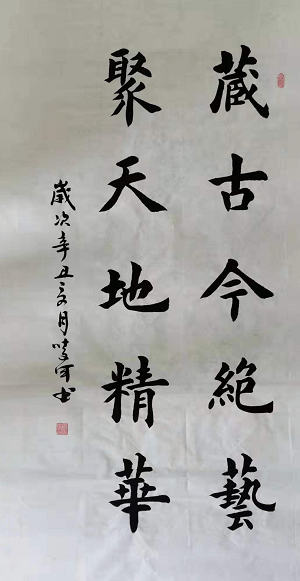 藏古今絕藝
聚天地精華
歲次辛丑之月